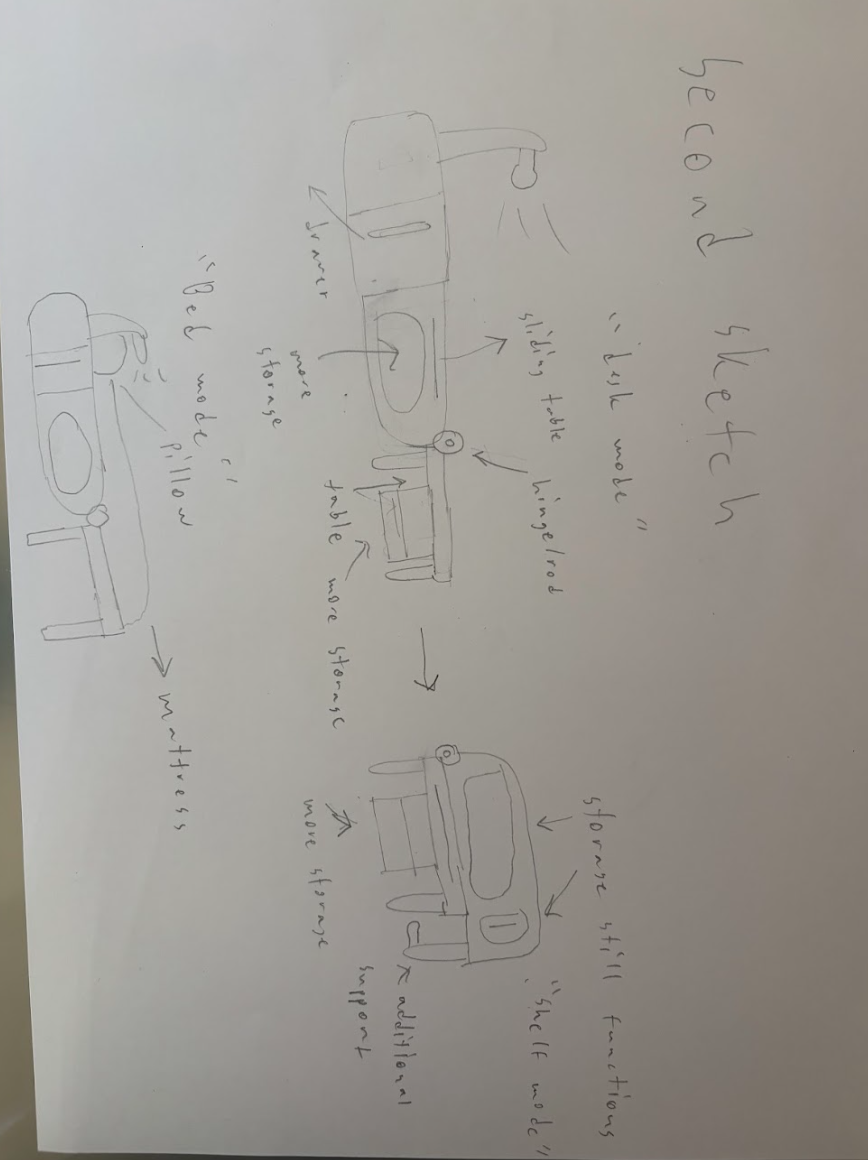 second sketch
"desk mode"
sliding table
hinge/rod
drawer
more
storage
table
more storage
storage still functions
"shelf mode"
more storage
additional
support
"Bed mode"
pillow
mattress